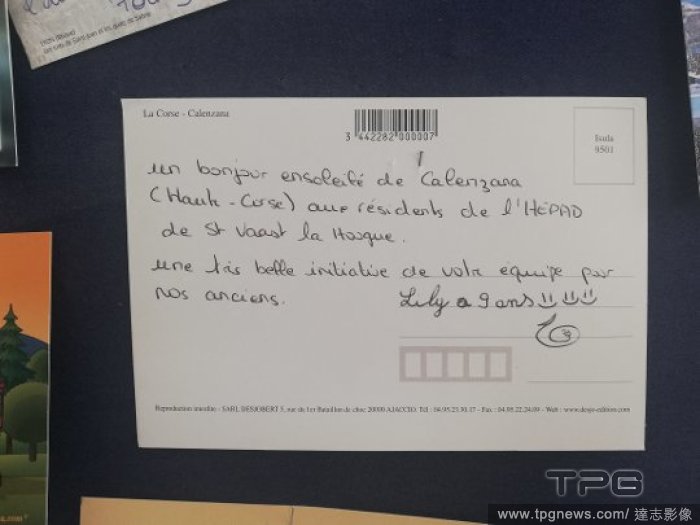 La Corse - Calenzana
3 442282 000007
Isula
9501
un bonjour ensoleifé de Calenzana
(Haute - Corse) aux résidents de l'HEPAD
de St Vaast la Hougue.
une très belle initiative de votre équipe pour
nos anciens.
Lily a 9 ans
Reproduction interdite - SARL DESJOBERT 5, rue du 1er Bataillon de choc 20000 AJACCIO. Tél : 04.95.23.30.17 - Fax : 04.95.22.24.09 - Web : www.desjo-edition.com
TPG
www.tpgnews.com/ 達志影像